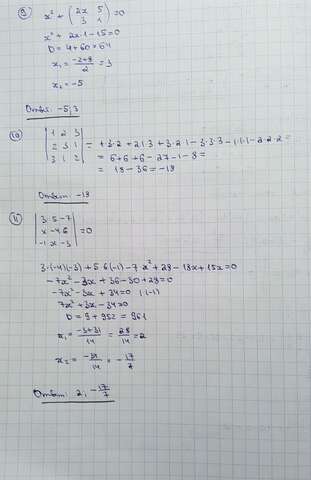 9) x² + (2x 5
3 1) = 0
x² + 2x·1 - 15 = 0
D = 4 + 60 = 64
x₁ = (-2+8)/2 = 3
x₂ = -5
Ответ: -5; 3
10) |1 2 3
2 3 1
3 1 2| = 1·3·2 + 2·1·3 + 3·2·1 - 3·3·3 - 1·1·1 - 2·2·2 =
= 6 + 6 + 6 - 27 - 1 - 8 =
= 18 - 36 = -18
Ответ: -18
11) |3 5 -7
x -4 6
-1 x -3| = 0
3·(-4)(-3) + 5·6(-1) - 7x² + 28 - 18x + 15x = 0
-7x² - 3x + 36 - 30 + 28 = 0
-7x² - 3x + 34 = 0 |·(-1)
7x² + 3x - 34 = 0
D = 9 + 952 = 961
x₁ = (-3+31)/14 = 28/14 = 2
x₂ = -34/14 = -17/7
Ответ: 2; -17/7